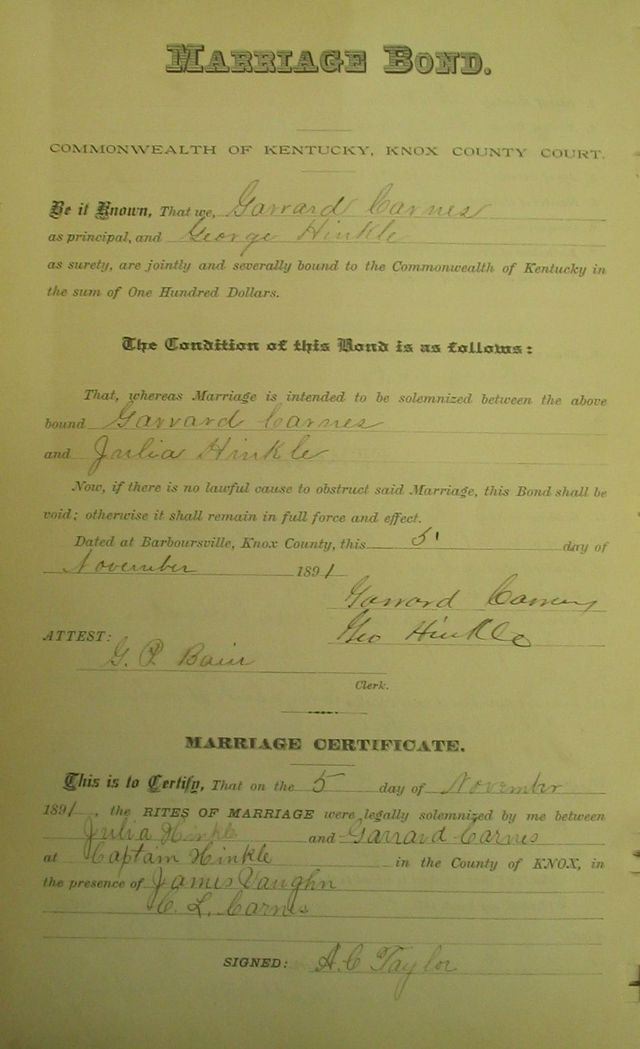 MARRIAGE BOND.
COMMONWEALTH OF KENTUCKY, KNOX COUNTY COURT.
Be it Known, That we, Garrard Carnes
as principal, and George Hinkle
as surety, are jointly and severally bound to the Commonwealth of Kentucky in
the sum of One Hundred Dollars.
The Condition of this Bond is as follows:
That, whereas Marriage is intended to be solemnized between the above
bound Garrard Carnes
and Julia Hinkle
Now, if there is no lawful cause to obstruct said Marriage, this Bond shall be
void; otherwise it shall remain in full force and effect.
Dated at Barboursville, Knox County, this 5 day of
November 1891
Garrard Carnes
Geo Hinkle
ATTEST:
G. P. Bain
Clerk.
MARRIAGE CERTIFICATE.
This is to Certify, That on the 5 day of November
1891, the RITES OF MARRIAGE were legally solemnized by me between
Julia Hinkle and Garrard Carnes
at Captain Hinkle in the County of KNOX, in
the presence of James Vaughn
C. L. Carnes
SIGNED: A. C Taylor